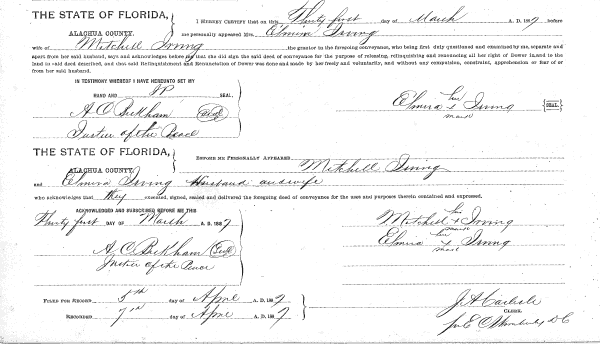 THE STATE OF FLORIDA,
ALACHUA COUNTY.
I HEREBY CERTIFY that on this Thirty first day of March A. D. 1887 before
me personally appeared Mrs. Elmira Irving
wife of Mitchell Irving the grantor in the foregoing conveyance, who being first duly questioned and examined by me, separate and
apart from her said husband, says and acknowledges before me that she did sign the said deed of conveyance for the purpose of releasing, relinquishing and renouncing all her right of Dower in and to the
land in said deed described, and that said Relinquishment and Renunciation of Dower was done and made by her freely and voluntarily, and without any compulsion, constraint, apprehension or fear of or
from her said husband.
IN TESTIMONY WHEREOF I HAVE HEREUNTO SET MY
HAND AND JP SEAL.
A C Beckham (Seal)
Justice of the Peace
Elmira her x mark Irving {SEAL.}
THE STATE OF FLORIDA,
ALACHUA COUNTY.
BEFORE ME PERSONALLY APPEARED Mitchell Irving
and Elmira Irving Husband and wife
who acknowledges that they executed, signed and delivered the foregoing deed of conveyance for the uses and purposes therein contained and expressed.
ACKNOWLEDGED AND SUBSCRIBED BEFORE ME THIS
Thirty first DAY OF March A. D. 1887
Mitchell his x mark Irving
Elmira her x mark Irving
A. C. Beckham (Seal)
Justice of the Peace
FILED FOR RECORD 5th day of April A. D. 1887
RECORDED 7th day of April A. D. 1887
J A Carlisle
CLERK.
per E C DC